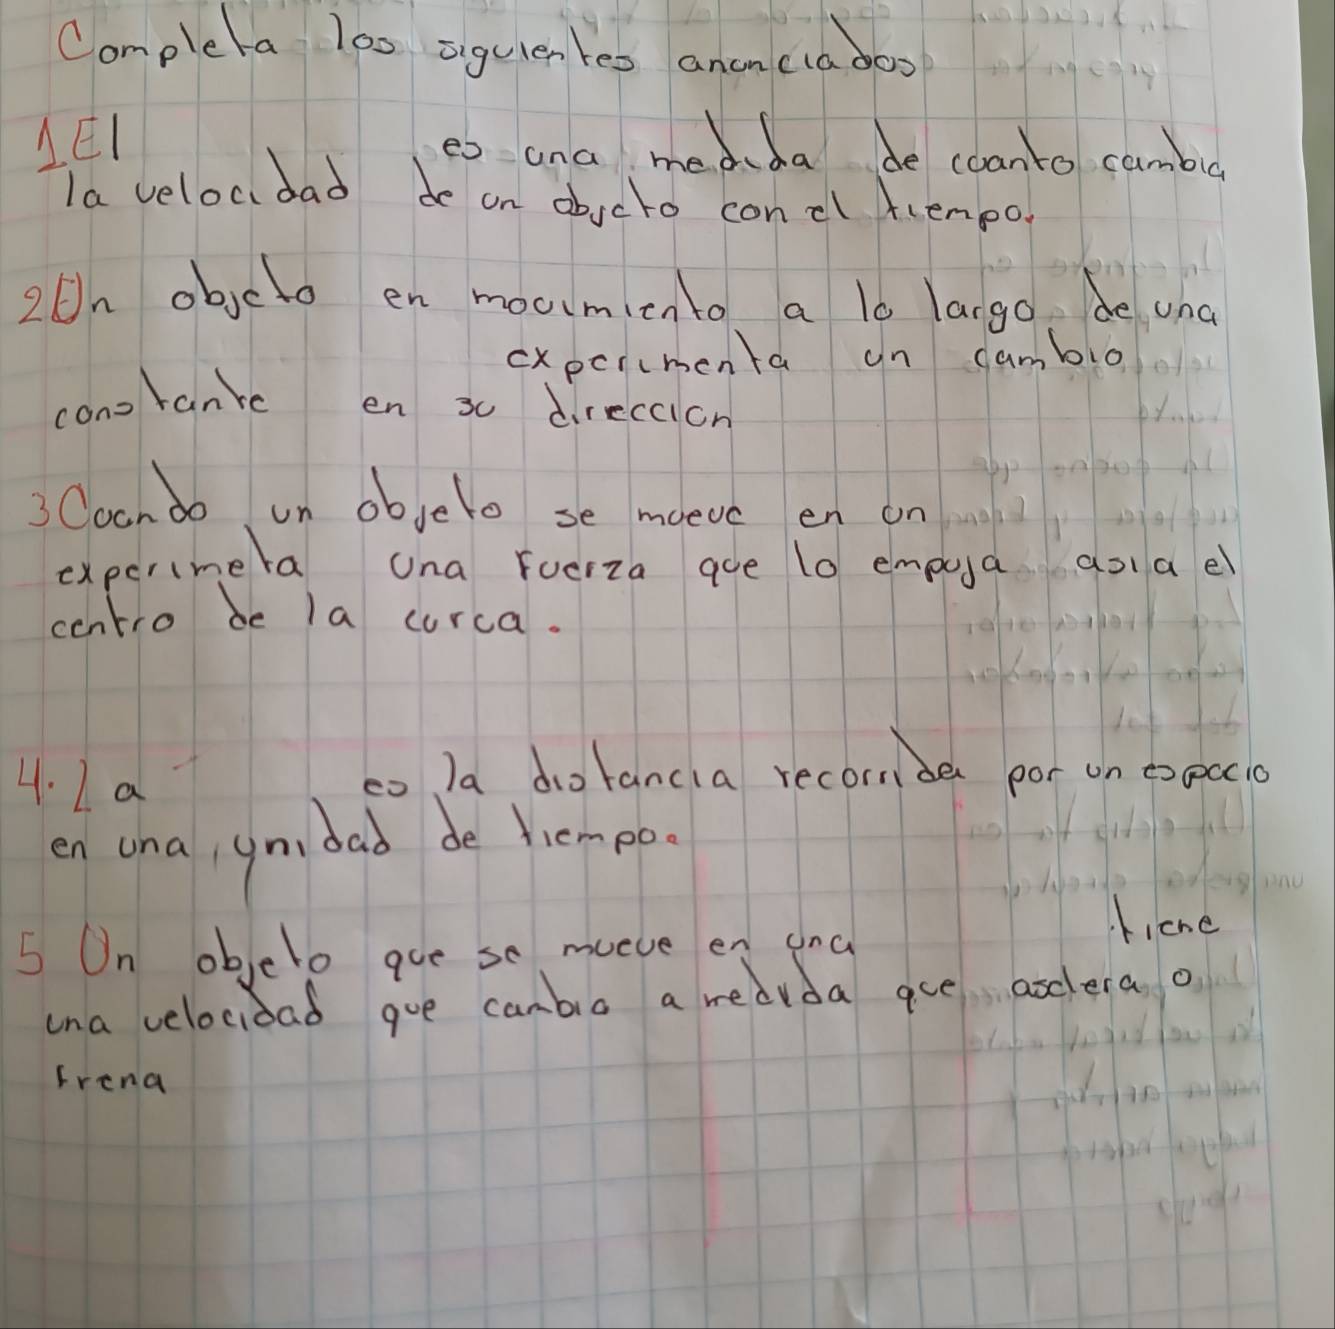 Completa los siguientes anunciados
1 El es una medida de cuanto cambia
la velocidad de un objeto con el tiempo.
2 Un objeto en movimiento a lo largo de una
experimenta un cambio
constante en su direccion
3 Cuando un objeto se mueve en un
experimeta una fuerza que lo empuja asia el
centro de la curca.
4. La es la distancia recorrida por un espacio
en una unidad de tiempo.
5 Un objeto que se mueve en una tiene
una velocidad que cambia a medida que asclera o
frena